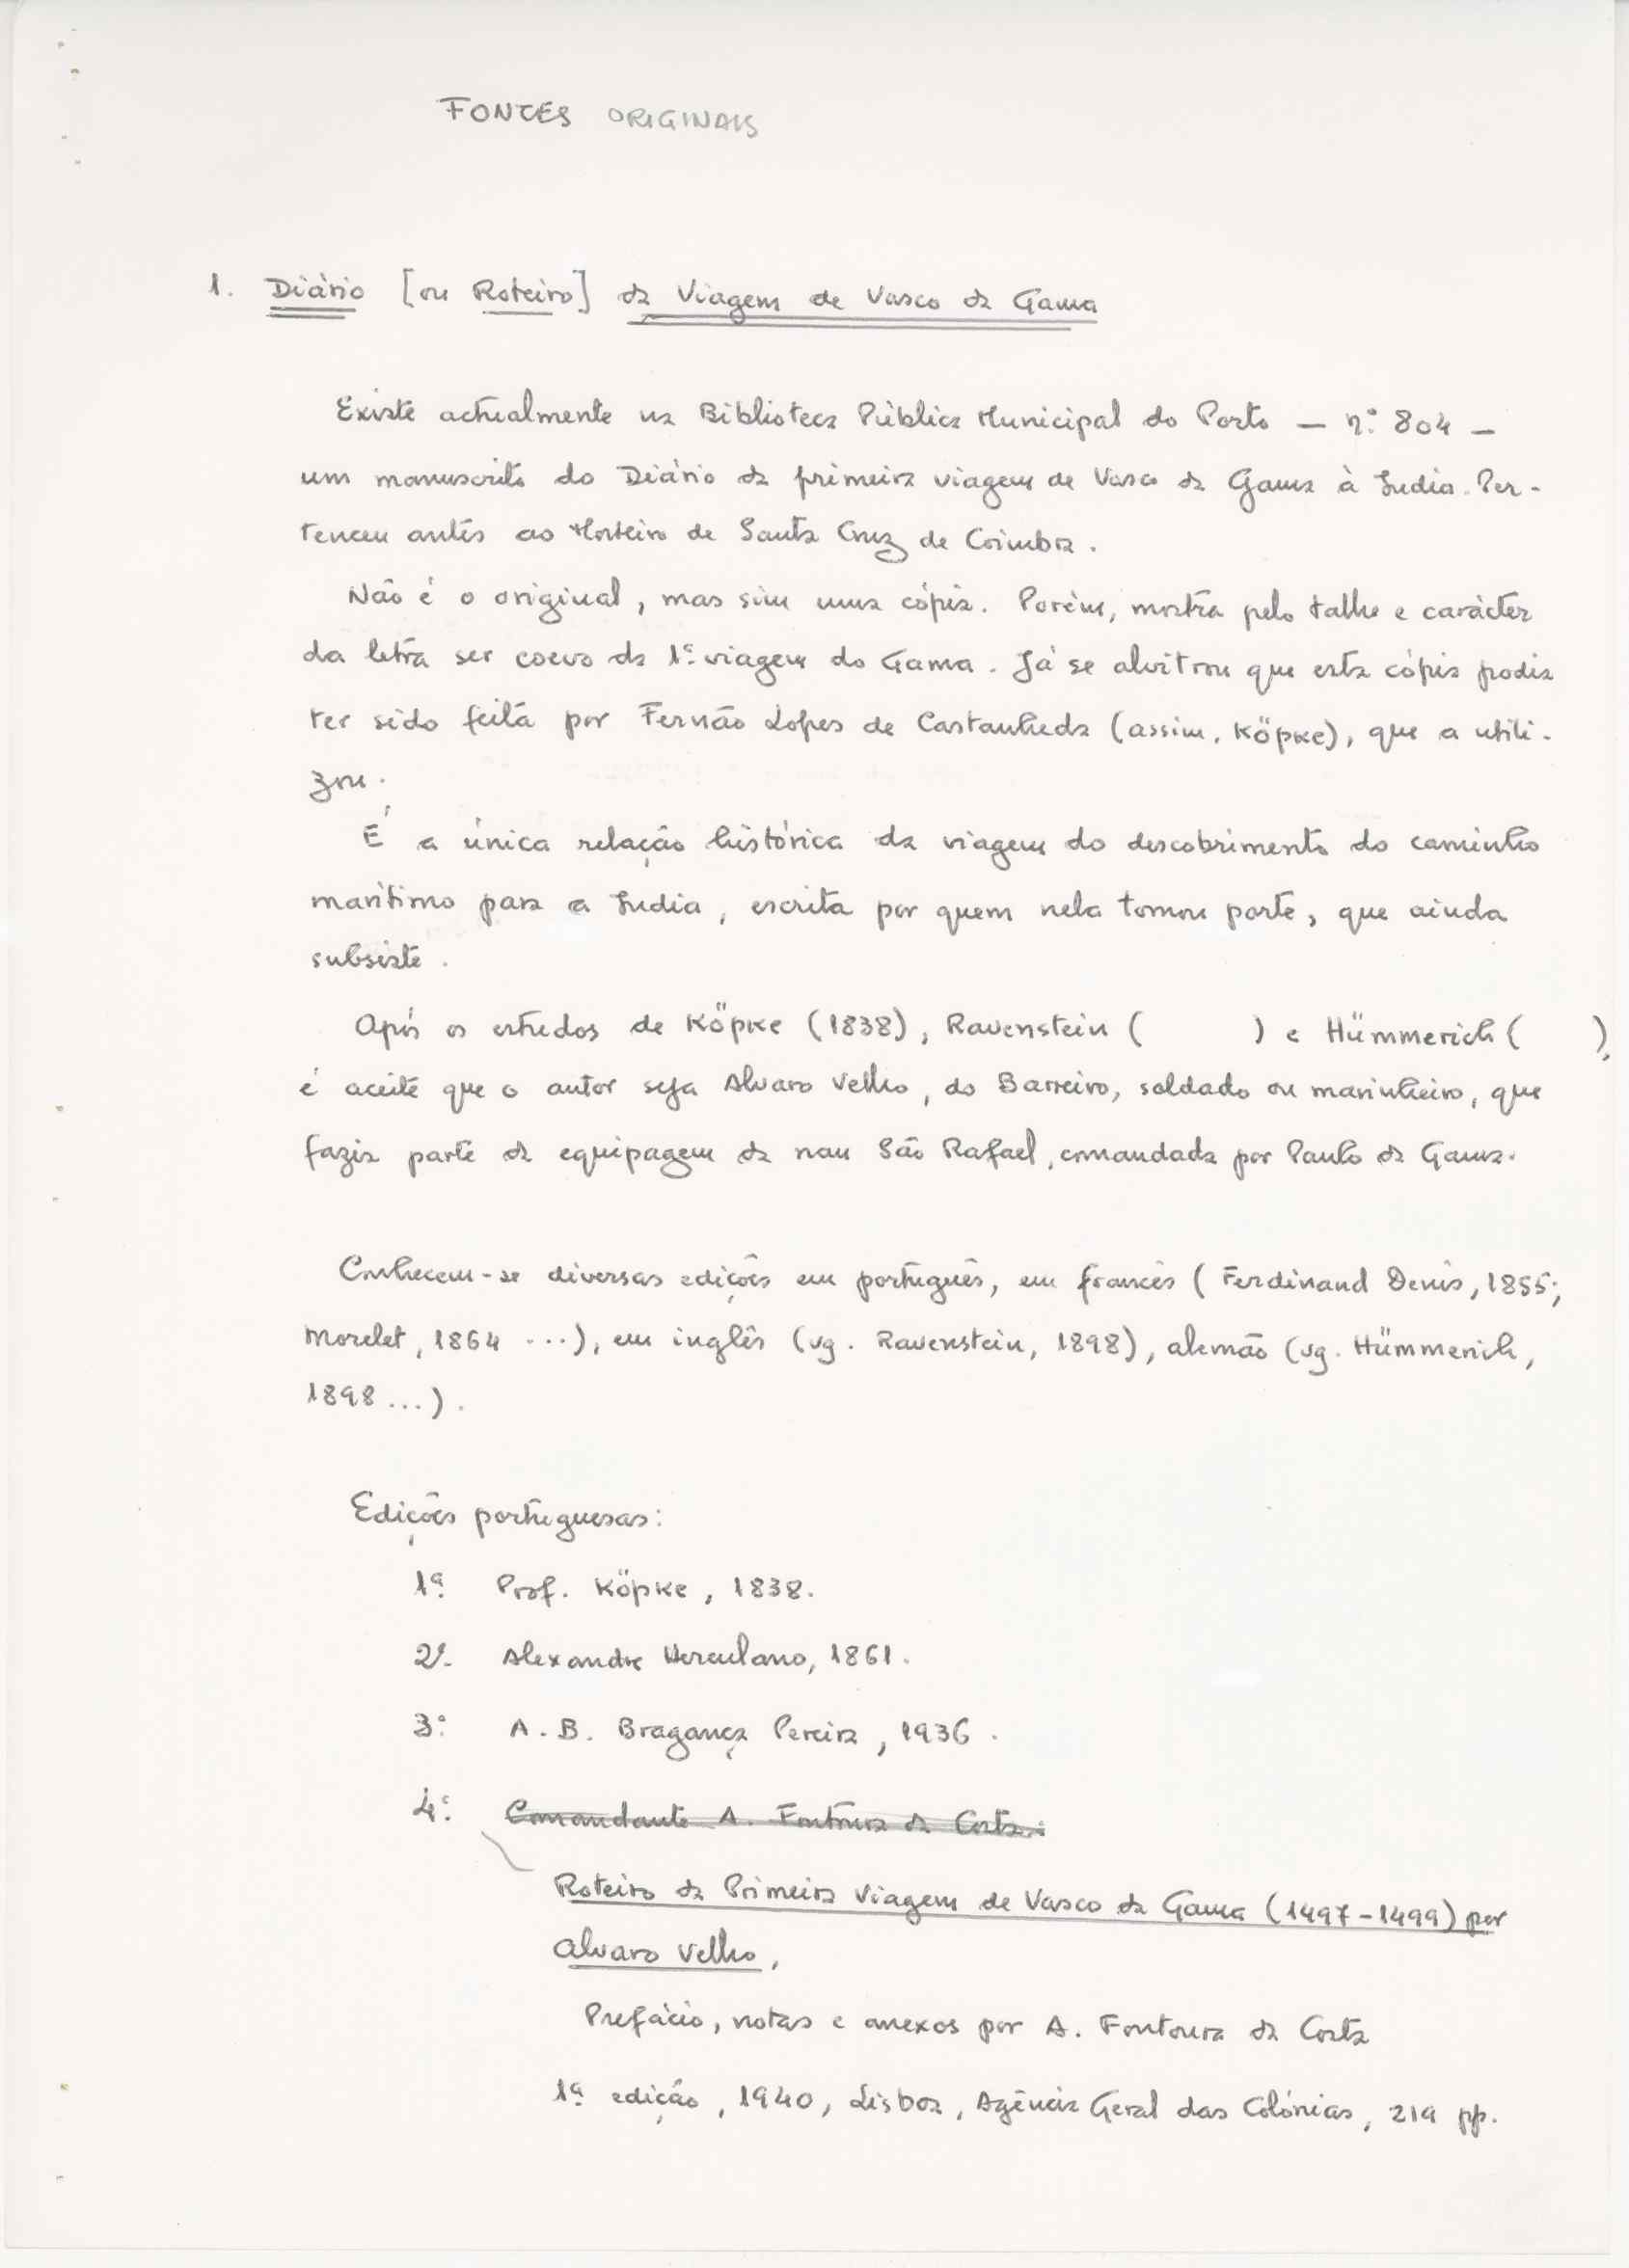 FONTES ORIGINAIS
1. Diário [ou Roteiro] da Viagem de Vasco da Gama
Existe actualmente na Biblioteca Pública Municipal do Porto — n.º 804 —
um manuscrito do Diário da primeira viagem de Vasco da Gama à India. Per-
tenceu antes ao Mosteiro de Santa Cruz de Coimbra.
Não é o original, mas sim uma cópia. Porém, mostra pelo talhe e carácter
da letra ser coevo da 1ª viagem do Gama. Já se alvitrou que esta cópia podia
ter sido feita por Fernão Lopes de Castanheda (assim, Köpke), que a utili-
zou.
É a única relação histórica da viagem do descobrimento do caminho
marítimo para a India, escrita por quem nela tomou parte, que ainda
subsiste.
Após os estudos de Köpke (1838), Ravenstein ( ) e Hümmerich ( ),
é aceite que o autor seja Alvaro Velho, do Barreiro, soldado ou marinheiro, que
fazia parte da equipagem da nau São Rafael, comandada por Paulo da Gama.
Conhecem-se diversas edições em português, em francês (Ferdinand Denis, 1855;
Morelet, 1864 ...), em inglês (vg. Ravenstein, 1898), alemão (vg. Hümmerich,
1898 ...).
Edições portuguesas:
1ª. Prof. Köpke, 1838.
2ª. Alexandre Herculano, 1861.
3ª. A. B. Bragança Pereira, 1936.
4ª. Comandante A. Fontoura da Costa:
Roteiro da Primeira Viagem de Vasco da Gama (1497-1499) por
Alvaro Velho,
Prefácio, notas e anexos por A. Fontoura da Costa
1ª edição, 1940, Lisboa, Agência Geral das Colónias, 219 pp.